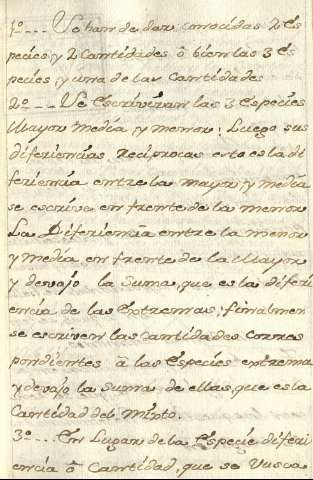 1º... Se han de dar conocidas 2 Es
pecies, y 2 Cantidades ô bien las 3 es
pecies y una de las Cantidades
2º... Se Escriviran las 3 Especies
Mayor media y menor; Luego sus
diferiencias, Reciprocas esto es la di
feriencia entre la mayor y media
se escrive en frente de la menor
La Diferiencia entre la menor
y media en frente de la Mayor
y devajo la Suma, que es la diferi
encia de las Extremas; finalmen
se escriven las Cantidades Corres
pondientes â las Especies extremas
y devajo la Suma de ellas, que es la
Cantidad del Mixto.
3º... En Lugar de la Especie diferi
encia ô Cantidad, que se Vusca